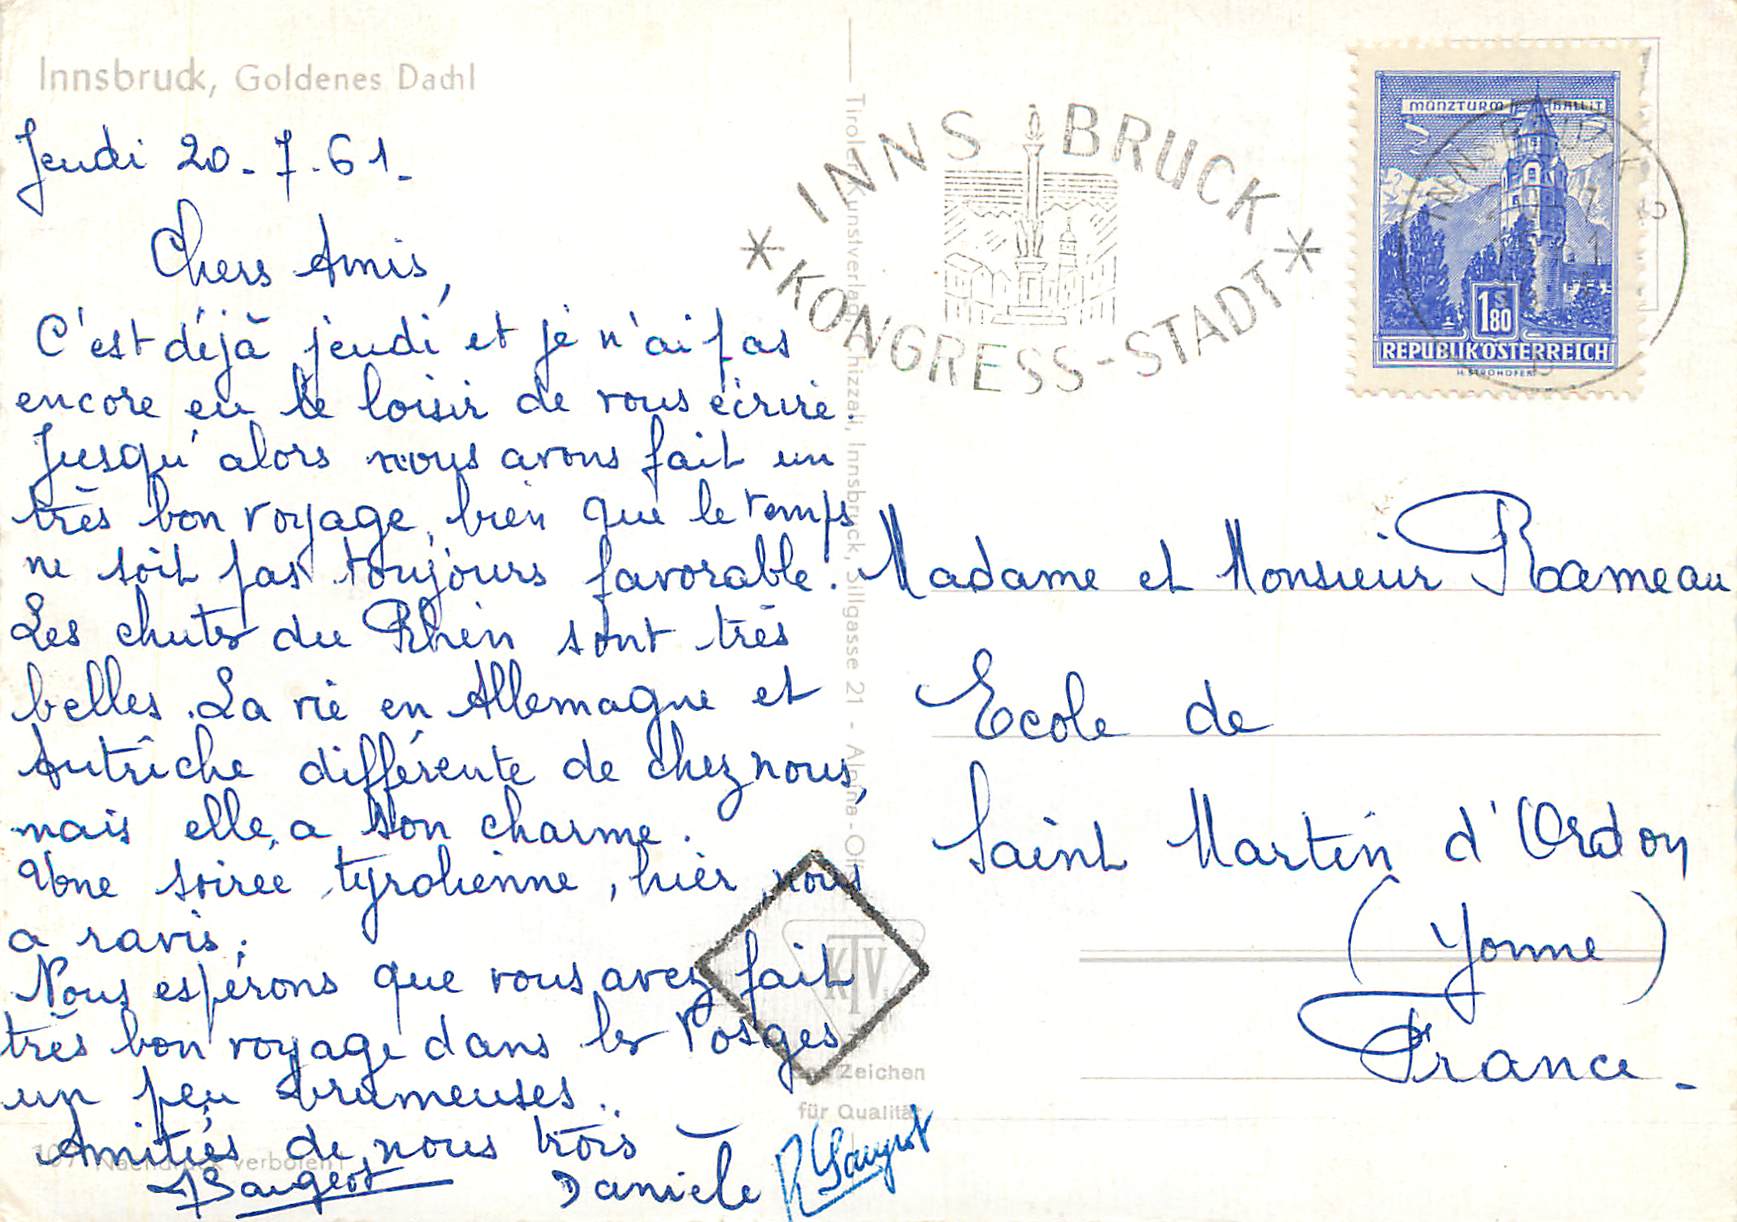 Innsbruck, Goldenes Dachl
Jeudi 20-7-61-
Chers Amis,
C'est déjà jeudi et je n'ai pas
encore eu le loisir de vous écrire.
Jusqu'alors nous avons fait un
très bon voyage, bien que le temps
ne soit pas toujours favorable.
Les chutes du Rhin sont très
belles. La vie en Allemagne et
Autriche différente de chez nous,
mais elle a son charme.
Une soirée tyrolienne, hier, nous
a ravis.
Nous espérons que vous avez fait
très bon voyage dans les Vosges
un peu brumeuses.
Amitiés de nous trois -
Daniele
107 Nachdruck verboten!
Tiroler Kunstverlag Chizzali, Innsbruck, Sillgasse 21 - Alpina-Of
KTV
Das Zeichen
für Qualität
INNSBRUCK
KONGRESS-STADT
MÜNZTURM HALL I T
1 S 80
REPUBLIK ÖSTERREICH
H. STROHOFER
INNSBRUCK
Madame et Monsieur Rameau
Ecole de
Saint Martin d'Ordon
(Yonne)
France -